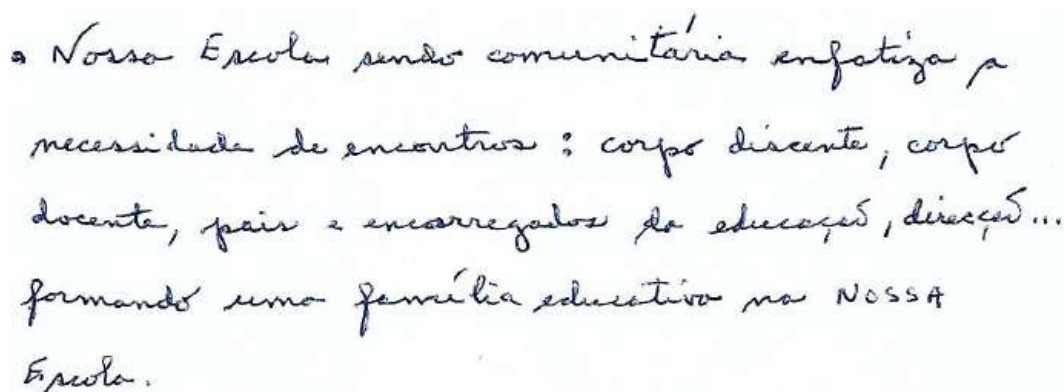 a Nossa Escola sendo comunitária enfatiza a
necessidade de encontros: corpo discente, corpo
docente, pais e encarregados da educação, direcção...
formando uma família educativa na NOSSA
Escola.